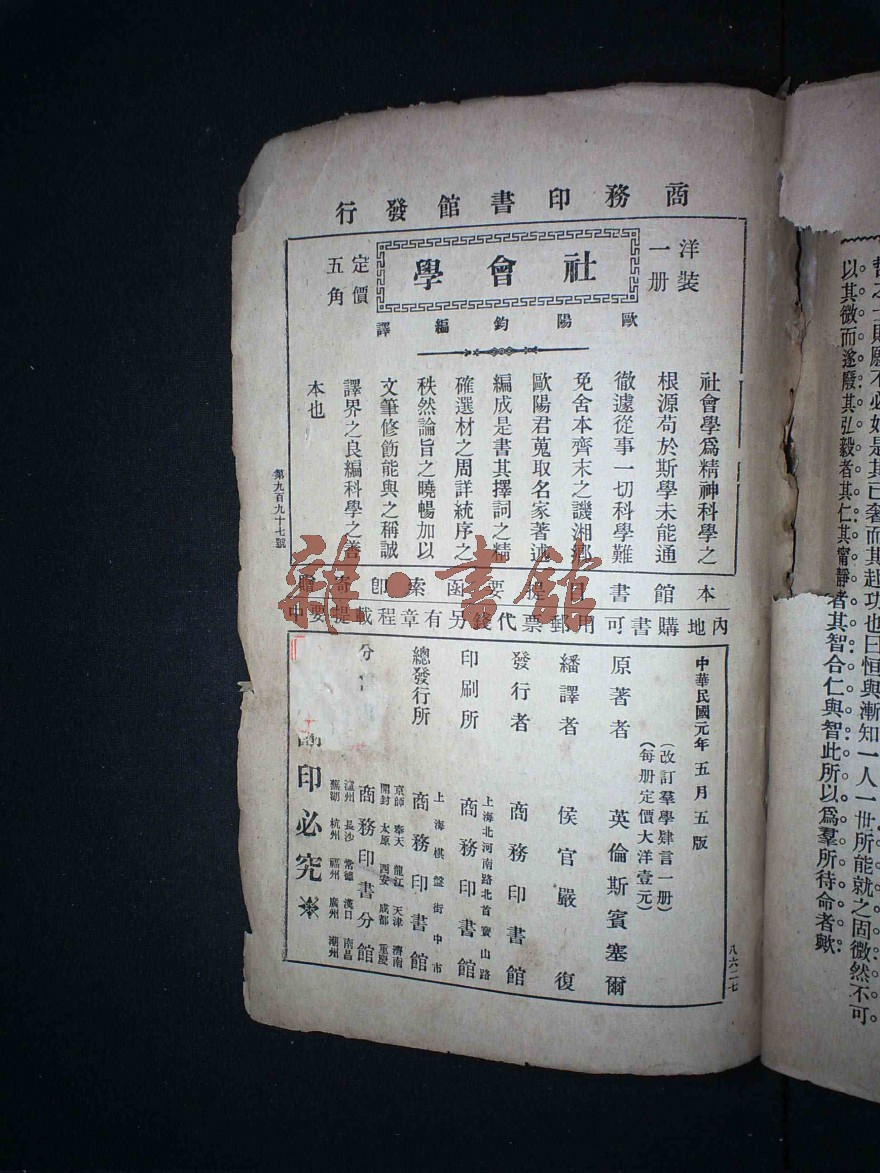 商務印書館發行
洋裝
一册
社會學
定價
五角
歐陽鈞編譯
社會學爲精神科學之
根源苟於斯學未能通
徹遽從事一切科學難
免舍本齊末之譏湘鄉
歐陽君蒐取名家著述
編成是書其擇詞之精
確選材之周詳統序之
秩然論旨之曉暢加以
文筆修飭能與之稱誠
譯界之良編科學之善
本也
第九百九十七號
本館書目提要函索即寄贈
內地購書可用郵票代錢另有章程載提要中
中華民國元年五月五版
(改訂羣學肄言一册)
(每册定價大洋壹元)
原著者 英倫斯賓塞爾
繙譯者 侯官嚴復
發行者 商務印書館
上海北河南路北首寶山路
印刷所 商務印書館
上海棋盤街中市
總發行所 商務印書館
京師 奉天 龍江 天津 濟南
開封 太原 西安 成都 重慶
分 商務印書分館
瀘州 長沙 常德 漢口 南昌
蕪湖 杭州 福州 廣州 潮州
印必究※
八六二七
雜·書館
哲之士則廢不必如是其已奢而其起功也曰恒與漸知一人一世所能就之固微然不可
以其微而遂廢其弘毅者其仁其甯靜者其智合仁與智此所以爲羣所待命者歟